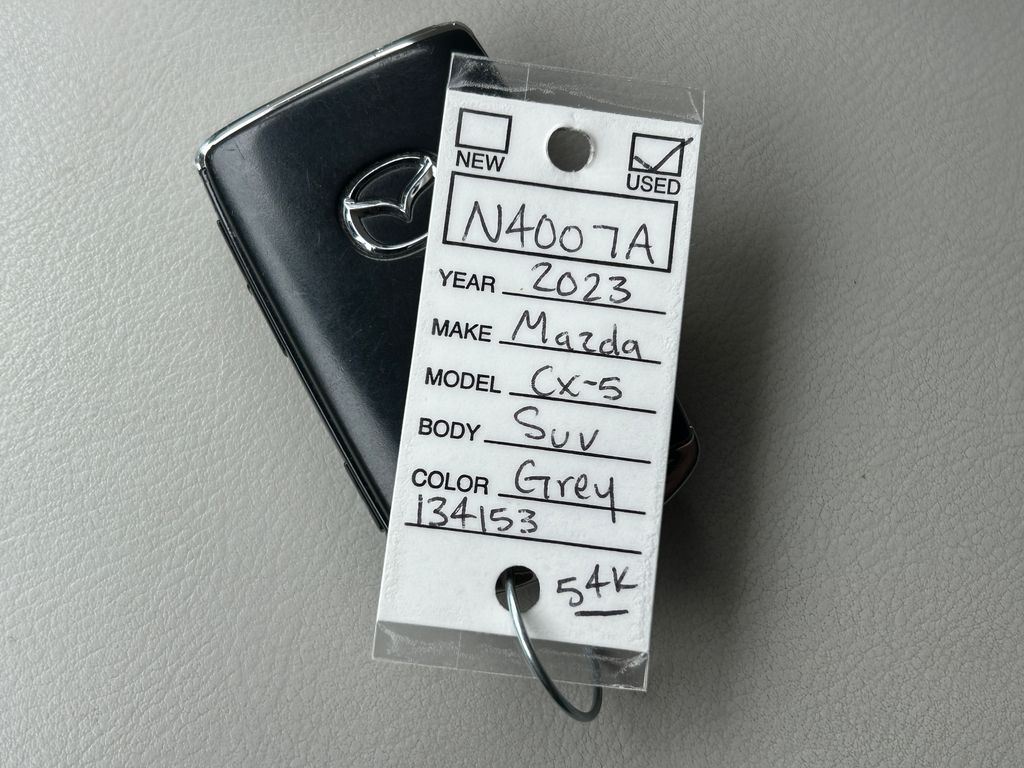 NEW USED
N4007A
YEAR 2023
MAKE Mazda
MODEL Cx-5
BODY Suv
COLOR Grey
134153
54K